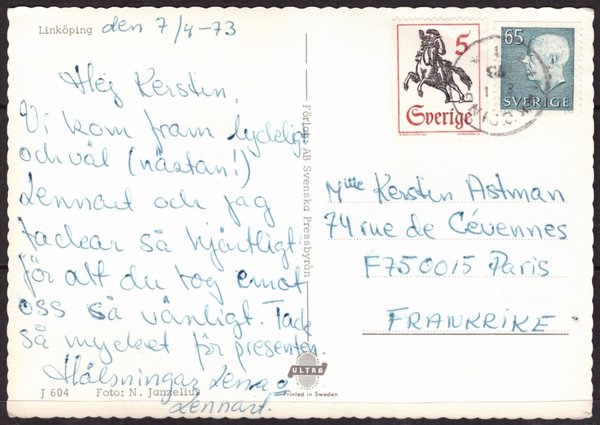 Linköping den 7/4-73
Hej Kerstin,
Vi kom fram lyckligt
och väl (nästan!)
Lennart och jag
tackar så hjärtligt
för att du tog emot
oss så vänligt. Tack
så mycket för presenten.
Hälsningar Lena o
Lennart.
J 604 Foto: N. Janzelius
Förlag: AB Svenska Pressbyrån
ULTRA
Printed in Sweden
5
Sverige
65
SVERIGE
Mlle Kerstin Astman
74 rue de Cévennes
F750015 Paris
FRANKRIKE